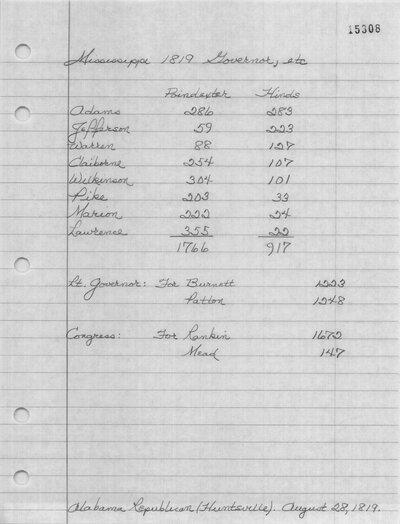 15308
Mississippi 1819 Governor, etc
Poindexter Hinds
Adams 286 283
Jefferson 59 223
Warren 88 127
Claiborne 254 107
Wilkinson 304 101
Pike 203 33
Marion 222 24
Lawrence 355 22
1766 917
Lt. Governor: For Burnett 1223
Patton 1248
Congress: For Rankin 1672
Mead 147
Alabama Republican (Huntsville). August 28, 1819.